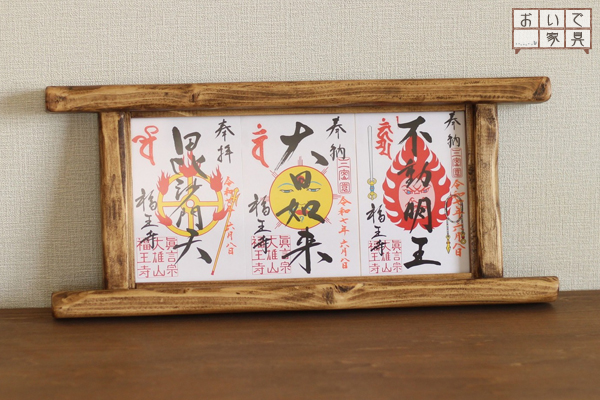 おいで
家具
奉納
三宝宮
不動明王
令和七年六月八日
福王寺
眞言宗
大雄山
福王寺
奉納
三宝宮
大日如来
令和七年六月八日
福王寺
眞言宗
大雄山
福王寺
奉拝
毘沙門天
福王寺
眞言宗
大雄山
福王寺